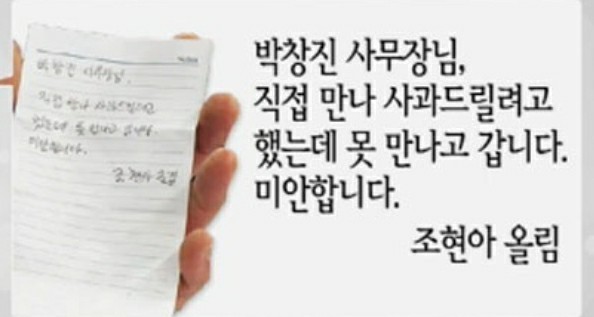 박창진 사무장님,
직접 만나 사과드릴려고
했는데 못 만나고 갑니다.
미안합니다.
조현아 올림
박창진 사무장님,
직접 만나 사과드릴려고
했는데 못 만나고 갑니다.
미안합니다.
조현아 올림